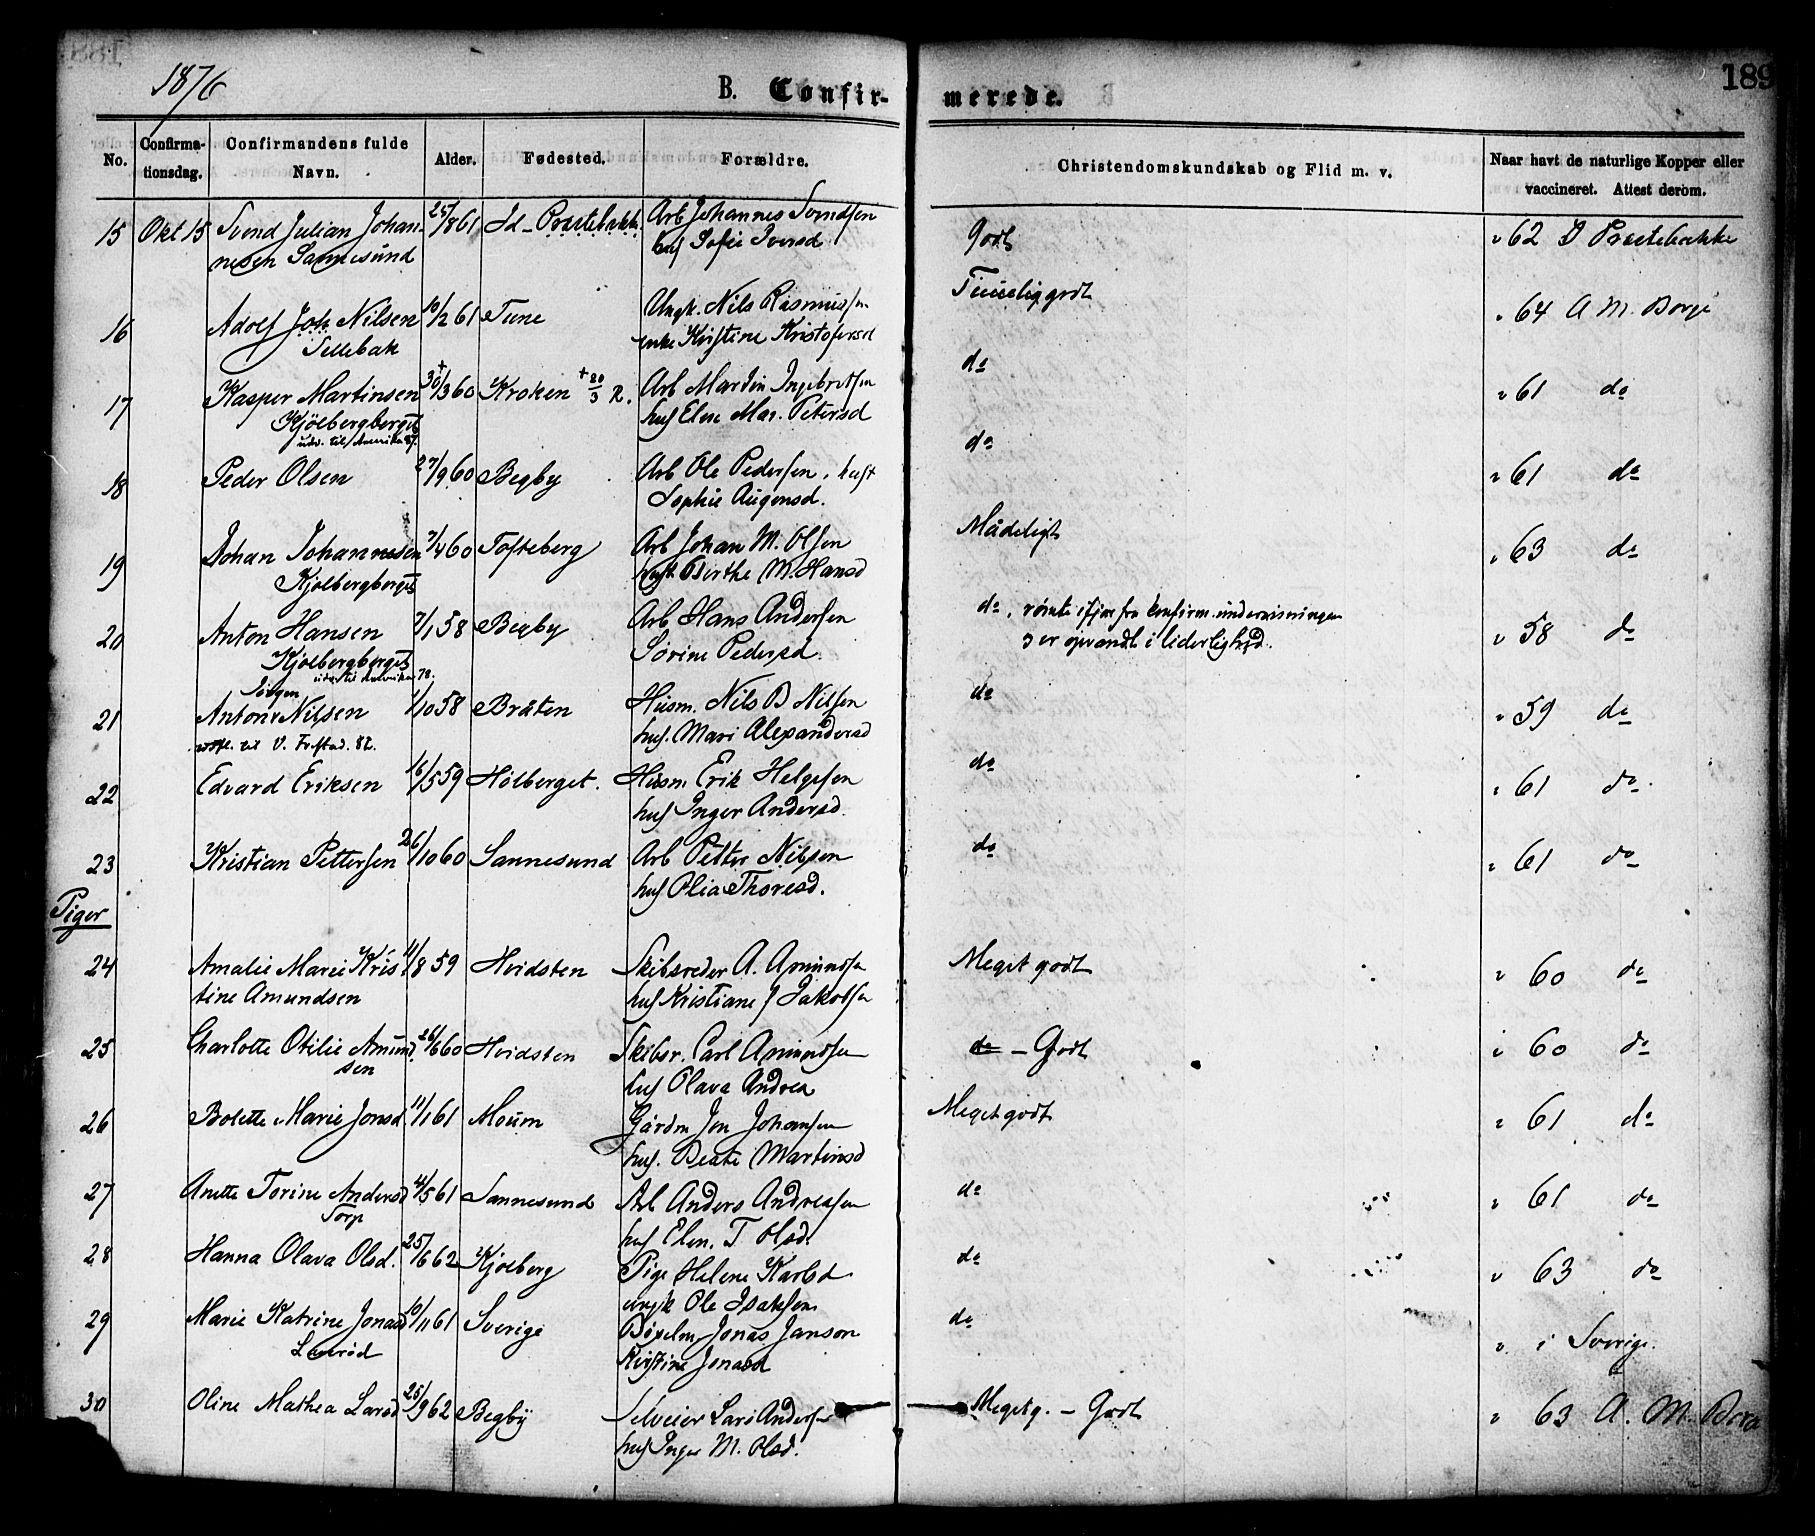 1876
B. Confir-
merede.
189
No.
Confirma-
tionsdag.
Confirmandens fulde
Navn.
Alder.
Fødested.
Forældre.
Christendomskundskab og Flid m. v.
Naar havt de naturlige Kopper eller
vaccineret. Attest derom.
15 Okt 15 Svend Julian Johan- 25/8 61 Id - Præstebakk. Arb Johannes Svendsen Godt v 62 Præstebakke
nesen Sannesund hus Sofie Iversd
16 Adolf Joh. Nilsen 10/12 61 Tune Ungk. Nils Rasmussen Timelig godt v 64 A M. Borge
Sellebak enke Kirstine Kristofersd
17 Kasper Martinsen 30/3 60 Kroken + 20/3 R. Arb Martin Ingebretsen do v 61 do
Kjölbergberget hus Elen Mar. Petersd
udv. til Amerika 87.
18 Peder Olsen 27/9 60 Begby Arb Ole Pedersen, hust do v 61 do
Sophie Augensd.
19 Johan Johannesen 7/4 60 Tofteberg Arb Johan M. Olsen Mådeligt v 63 do
Kjölbergberget hust Berthe M. Hansd
20 Anton Hansen 7/1 58 Begby Arb Hans Andersen do, römte ifjor fra konfirm. undervisningen v 58 do
Kjölbergberget Sörine Pedersd. er opvandt i liderlighed.
udv. til Amerika 78.
Jörgen
21 Anton Nilsen 1/10 58 Bråten Husm. Nils B Nilsen do v 59 do
til V. Frstad. 82. hus. Mari Alexandersd
22 Edvard Eriksen 16/5 59 Hölberget. Husm. Erik Helgesen do v 61 do
hus Inger Andersd.
23 Kristian Pettersen 26/10 60 Sannesund Arb Petter Nilsen do v 61 do
hus Olia Thoresd.
Piger
24 Amalie Marie Kris 11/8 59 Hvidsten Skibsreder A. Amundsen Meget godt v 60 do
tine Amundsen hus Kristiane J Jakobsen
25 Charlotte Otilie Amund 26/6 60 Hvidsten Skibsr. Carl Amundsen do - Godt i 60 do
sen hus Olava Andrea
26 Bolette Marie Jonsd 11/1 61 Moum Gårdm Jon Johansen Meget godt v 61 do
hus. Beate Martinsd
27 Anette Torine Andersd 4/5 61 Sannesund Arb Anders Andreasen do v 61 do
Torp hus Elen. T Olsd.
28 Hanna Olava Olsd. 25/6 62 Kjölberg Pige Helene Karlsd do v 63 do
ungk Ole Isaksen
29 Marie Katrine Jonasd 10/11 61 Sverige Jonas Janson do v. i Sverige.
Lerröd Kirstine Jonasd
30 Oline Mathea Larsd 25/9 62 Begby Selveier Lars Andersen Megetg. - Godt v 63 A. M. Borg
hus Inger M. Olsd.